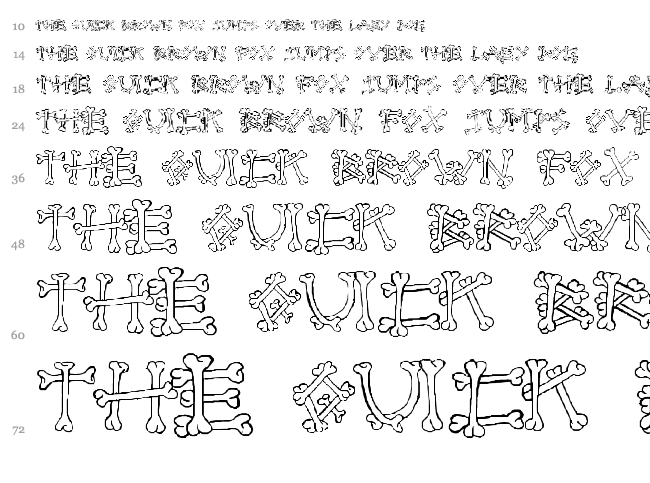 10 THE QUICK BROWN FOX JUMPS OVER THE LAZY DOG
14 THE QUICK BROWN FOX JUMPS OVER THE LAZY DOG
18 THE QUICK BROWN FOX JUMPS OVER THE LA
24 THE QUICK BROWN FOX JUMPS OVE
36 THE QUICK BROWN FOX
48 THE QUICK BROWN
60 THE QUICK BR
72 THE QUICK